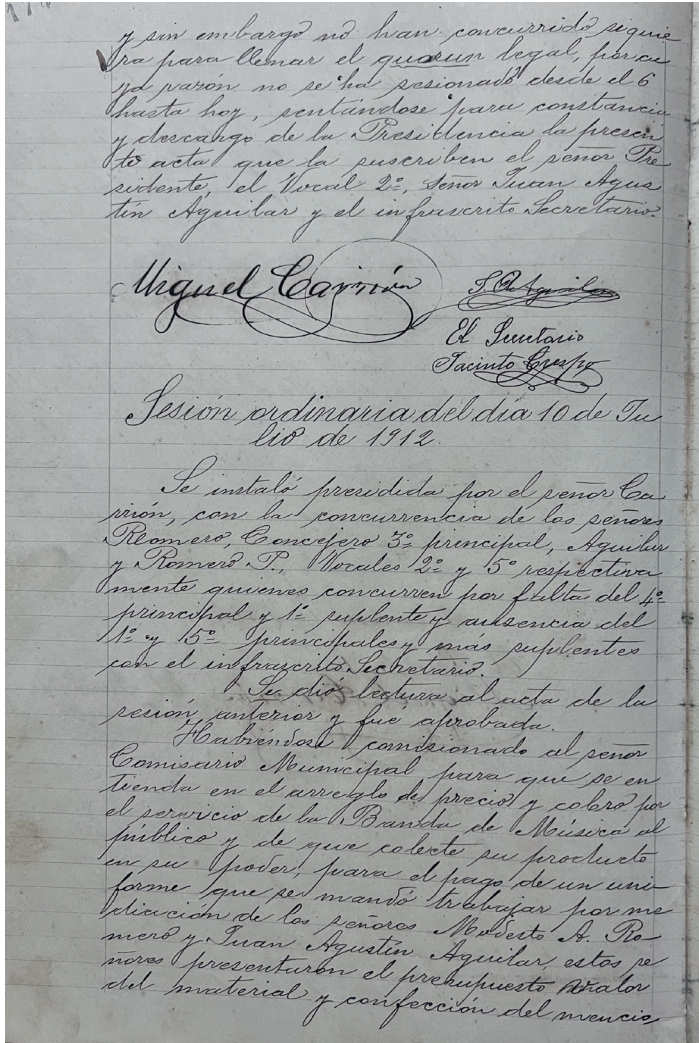 y sin embargo no han concurrido siquie
ra para llenar el quorun legal, por cu
ya razón no se ha sesionado desde el 6
hasta hoy, sentándose para constancia
y descargo de la Presidencia la presen
te acta que la suscriben el señor Pre
sidente, el Vocal 2º, señor Juan Agus
tín Aguilar y el infrascrito Secretario.
Miguel Carrión
J. A. Aguilar
El Secretario
Jacinto Crespo
Sesión ordinaria del día 10 de Ju
lio de 1912.
Se instaló presidida por el señor Ca
rrión, con la concurrencia de los señores
Romero, Concejero 3º principal, Aguilar
y Romero P., Vocales 2º y 5º respectiva
mente quienes concurren por falta del 4º
principal y 1º suplente y ausencia del
1º y 5º principales y más suplentes
con el infrascrito Secretario.
Se dió lectura al acta de la
sesión anterior y fue aprobada.
Habiéndose comisionado al señor
Comisario Municipal para que se en
tienda en el arreglo de precio y cobro por
el servicio de la Banda de Música al
público y de que colecte su producto
en su poder, para el pago de un uni
forme que se mandó trabajar por me
diación de los señores Modesto A. Ro-
mero y Juan Agustín Aguilar, estos se
ñores presentaron el presupuesto valor
del material y confección del mencio